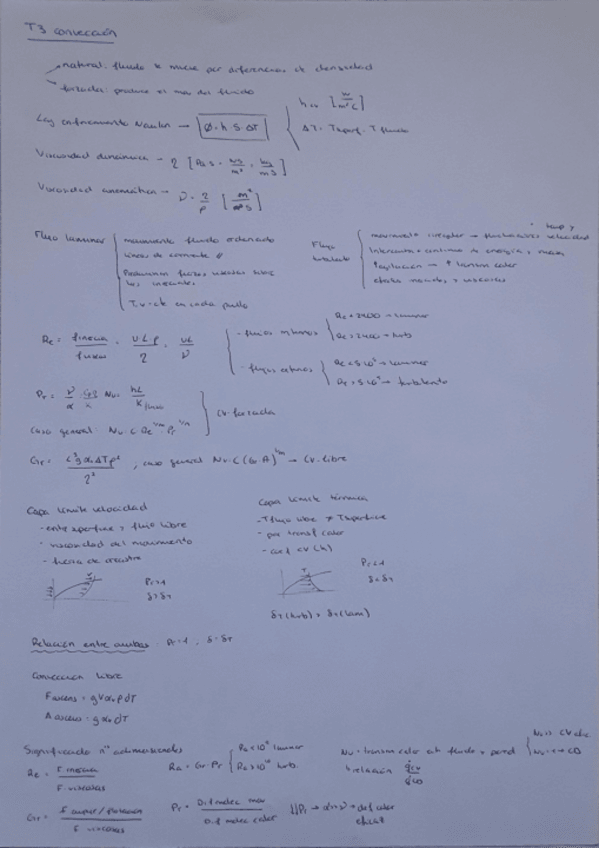 T3 convección
natural: fluido se mueve por diferencias de densidad
forzada: produce el mov del fluido
Ley enfriamiento Newton → Ø = h · S · ΔT
h cv [W/m²C]
ΔT = Tsuperf - T fluido
Viscosidad dinámica → η [Pa·s = Ns/m² = kg/ms]
Viscosidad cinemática → ν = η/ρ [m²/s]
Flujo laminar
movimiento fluido ordenado
líneas de corriente //
Predominan fuerzas viscosas sobre
las inerciales
T, v = cte en cada punto
Flujo turbulento
movimiento irregular → fluctuaciones velocidad
Intercambio continuo de energía y masa
↑ agitación → ↑ transm calor
Re = f inercia / f viscosa = v·L·ρ/η = vL/ν
- flujos internos
Re < 2400 → laminar
Re > 2400 → turb
- flujos externos
Re < 5·10⁵ → laminar
Re > 5·10⁵ → turbulento
Pr = ν/α Nu = hL/K fluido
caso general: Nu = C Re Pr
cv forzada
Gr = , caso general Nu = C (Gr·Pr) → cv. libre
Capa límite velocidad
- entre superficie y flujo libre
- viscosidad del movimiento
- fuerza de arrastre
Pr > 1
δ > δT
Capa límite térmica
- T flujo libre ≠ T superficie
- por transf calor
- coef cv (h)
Pr < 1
δ < δT
δT (turb) > δT (lam)
Relación entre ambas: Pr = 1, δ = δT
Convección libre
F ascens = gVαρdT
A ascens = gαdT
Significado nº adimensionales
Re = F. inercia / F. viscosas
Ra = Gr · Pr
laminar
turb.
Nu = transm calor entre fluido y pared
↳ relación q̇cv / q̇cd
Nu >> CV
Gr = f empuje / flotación / F viscosas
Pr = Dif molec mov / Dif molec calor
↓↓Pr → α >> ν → dif calor
eficaz